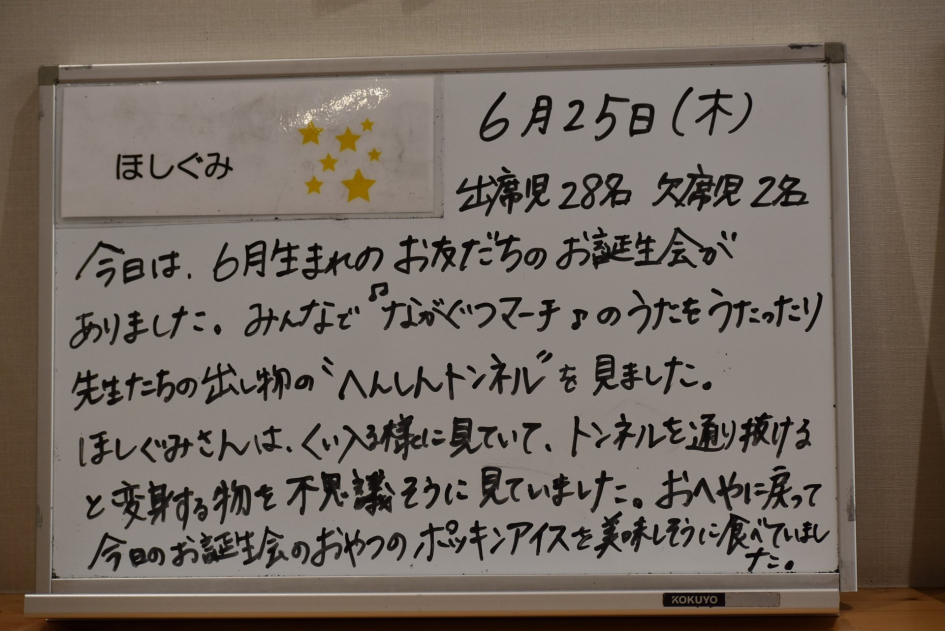 ほしぐみ
6月25日(木)
出席児28名 欠席児2名
今日は、6月生まれのお友だちのお誕生会が
ありました。みんなで♫ながぐつマーチ♪のうたをうたったり
先生たちの出し物の〝へんしんトンネル〟を見ました。
ほしぐみさんは、くい入る様に見ていて、トンネルを通り抜ける
と変身する物を不思議そうに見ていました。おへやに戻って
今日のお誕生会のおやつのポッキンアイスを美味しそうに食べていまし
た。
KOKUYO